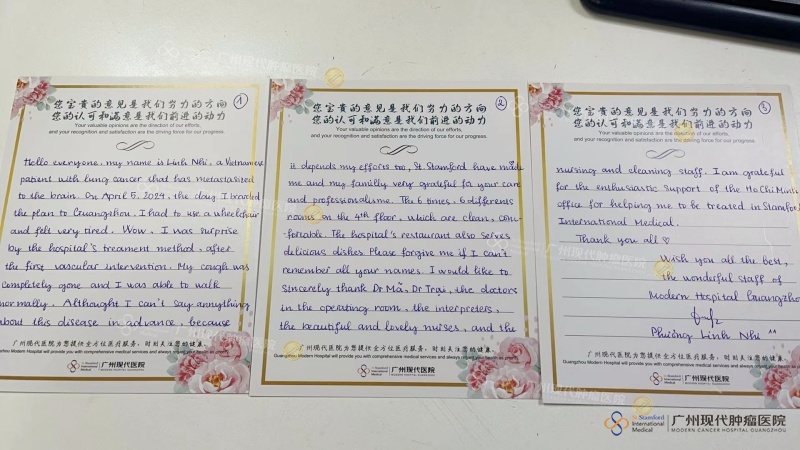 1
您宝贵的意见是我们努力的方向
您的认可和满意是我们前进的动力
Your valuable opinions are the direction of our efforts,
and your recognition and satisfaction are the driving force for our progress.
Hello everyone, my name is Linh Nhi, a Vietnamese
patient with lung cancer that has metastasised
to the brain. On April 5, 2024, the day I boarded
the plan to Guangzhou, I had to use a wheelchair
and felt very tired. Wow, I was surprise
by the hospital's treament method, after
the first vascular intervention. My cough was
completely gone and I was able to walk
normally. Althought I can't say annything
about this disease in advance, because
广州现代医院为您提供全方位医疗服务，时刻关注您的健康。
Guangzhou Modern Hospital will provide you with comprehensive medical services and always regard your health as priority.
St. Stamford International Medical
广州现代医院
MODERN HOSPITAL GUANGZHOU
2
您宝贵的意见是我们努力的方向
您的认可和满意是我们前进的动力
Your valuable opinions are the direction of our efforts,
and your recognition and satisfaction are the driving force for our progress.
it depends my efforts too, St. Stamford have made
me and my familly very grateful for your care
and professionalism. The 6 times, 6 differents
rooms on the 4th floor, which are clean, com-
fortable. The hospital's restaurant also serves
delicious dishes. Please forgive me if I can't
remember all your names. I would like to
sincerely thank Dr Mã, Dr Trại, the doctors
in the operating room, the interpreters,
the beautiful and lovely nurses, and the
广州现代医院为您提供全方位医疗服务，时刻关注您的健康。
Guangzhou Modern Hospital will provide you with comprehensive medical services and always regard your health as priority.
St. Stamford International Medical
广州现代医院
MODERN HOSPITAL GUANGZHOU
3
您宝贵的意见是我们努力的方向
您的认可和满意是我们前进的动力
Your valuable opinions are the direction of our efforts,
and your recognition and satisfaction are the driving force for our progress.
nursing and cleaning staff. I am grateful
for the enthusiastic support of the Ho Chi Minh
office for helping me to be treated in Stamford
International Medical.
Thank you all ♡
Wish you all the best,
the wonderful staff of
Modern Hospital Guangzhou
Phương Linh Nhi ^^
广州现代医院为您提供全方位医疗服务，时刻关注您的健康。
Guangzhou Modern Hospital will provide you with comprehensive medical services and always regard your health as
St. Stamford International Medical
广州现代肿瘤医院
MODERN CANCER HOSPITAL GUANGZHOU
广州现代肿瘤医院